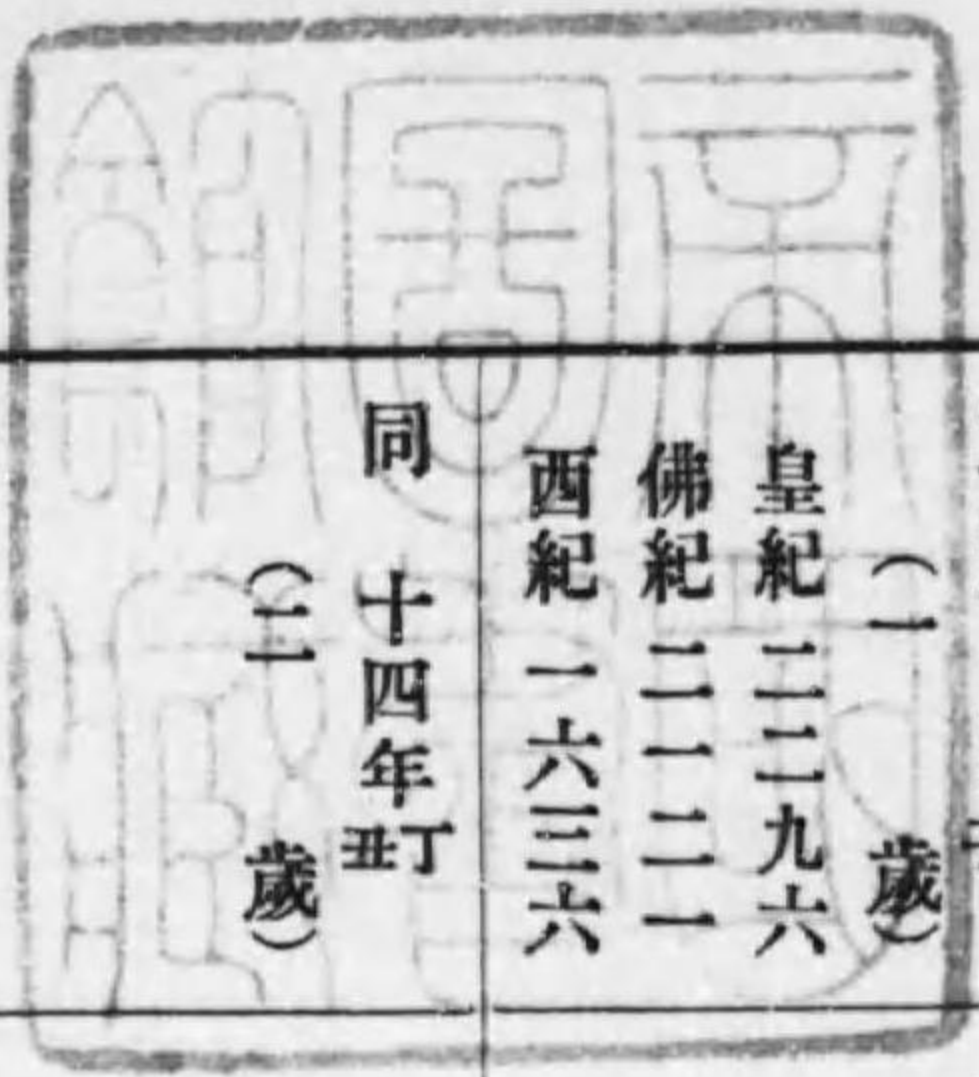 （一　歲）
皇紀 二二九六
佛紀 二一二一
西紀 一六三六
同　十四年丁丑
（二　歲）